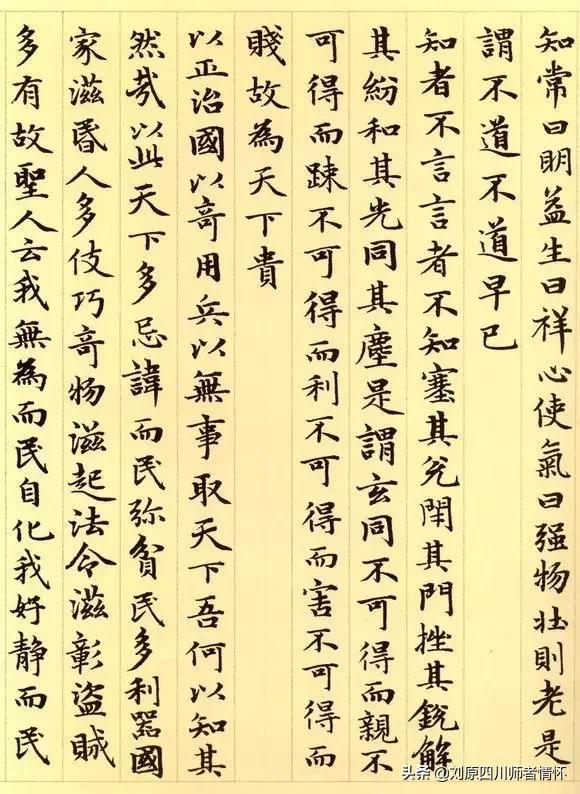 知常曰明益生曰祥心使氣曰强物壯則老是
謂不道不道早已
知者不言言者不知塞其兌閇其門挫其銳解
其紛和其光同其塵是謂玄同不可得而親不
可得而踈不可得而利不可得而害不可得而
賤故為天下貴
以正治國以竒用兵以無事取天下吾何以知其
然㢤以此天下多忌諱而民弥貧民多利器國
家滋昬人多伎巧竒物滋起法令滋彰盜賊
多有故聖人云我無為而民自化我好静而民
头条 @刘原四川师者情怀